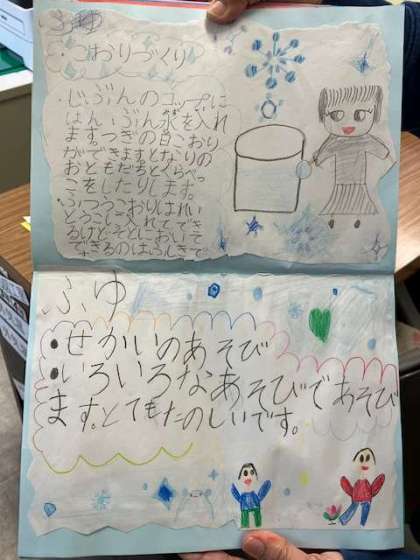 ふゆ
・こおりづくり
・じぶんのコップに
はんぶん水を入れ
ます。つぎの日こおり
ができますととなりの
おともだちとくらべっ
こをしたりします。
・ふつうこおりはれい
とうこにいれてでき
るけどそとにおいそ
できるのはふしぎで
す。
ふゆ
・せかいのあそび
・いろいろなあそびであそび
ます。とてもたのしいです。